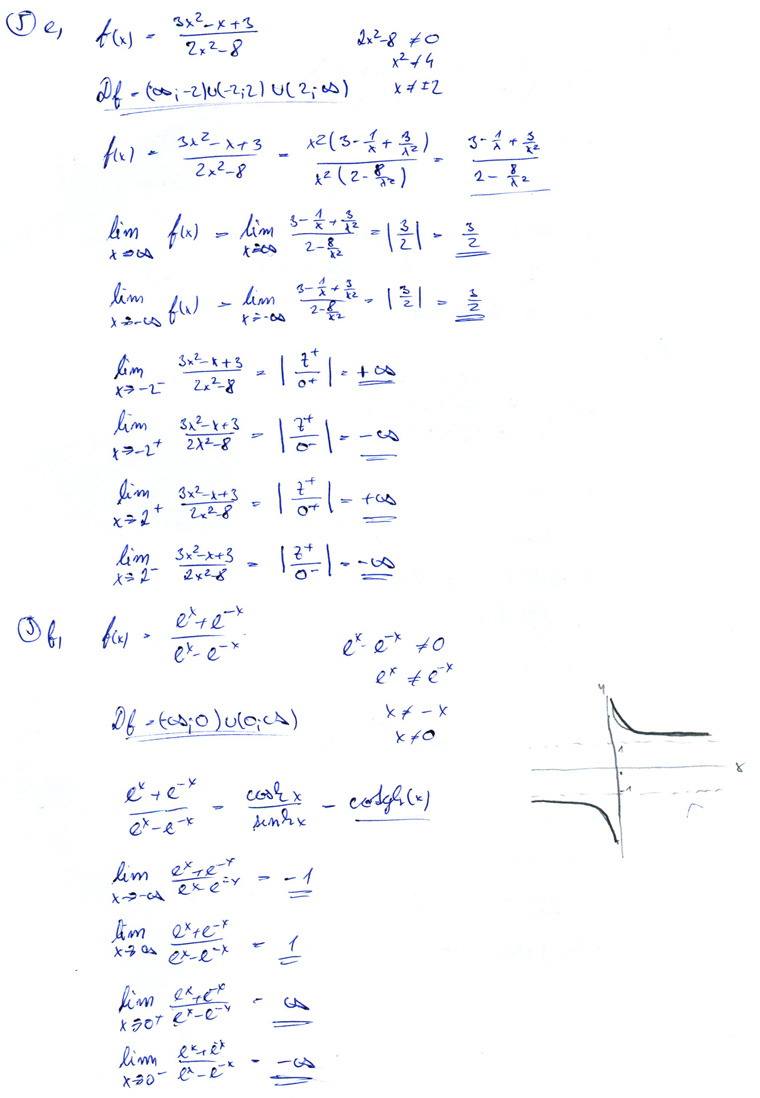 5 e, f(x) = (3x²-x+3)/(2x²-8) 2x²-8 ≠ 0
x² ≠ 4
Df = (∞; -2)∪(-2; 2)∪(2; ∞) x ≠ ±2
f(x) = (3x²-x+3)/(2x²-8) = x²(3 - 1/x + 3/x²)/x²(2 - 8/x²) = (3 - 1/x + 3/x²)/(2 - 8/x²)
lim x→∞ f(x) = lim x→∞ (3 - 1/x + 3/x²)/(2 - 8/x²) = |3/2| = 3/2
lim x→-∞ f(x) = lim x→-∞ (3 - 1/x + 3/x²)/(2 - 8/x²) = |3/2| = 3/2
lim x→-2⁻ (3x²-x+3)/(2x²-8) = |Z⁺/0⁺| = +∞
lim x→-2⁺ (3x²-x+3)/(2x²-8) = |Z⁺/0⁻| = -∞
lim x→2⁺ (3x²-x+3)/(2x²-8) = |Z⁺/0⁺| = +∞
lim x→2⁻ (3x²-x+3)/(2x²-8) = |Z⁺/0⁻| = -∞
5 f, f(x) = (eˣ+e⁻ˣ)/(eˣ-e⁻ˣ) eˣ - e⁻ˣ ≠ 0
eˣ ≠ e⁻ˣ
Df = (-∞; 0)∪(0; ∞) x ≠ -x
x ≠ 0
y
1
x
-1
(eˣ+e⁻ˣ)/(eˣ-e⁻ˣ) = cosh x/sinh x = cotgh(x)
lim x→-∞ (eˣ+e⁻ˣ)/(eˣ-e⁻ˣ) = -1
lim x→∞ (eˣ+e⁻ˣ)/(eˣ-e⁻ˣ) = 1
lim x→0⁺ (eˣ+e⁻ˣ)/(eˣ-e⁻ˣ) = ∞
lim x→0⁻ (eˣ+eˣ)/(eˣ-e⁻ˣ) = -∞